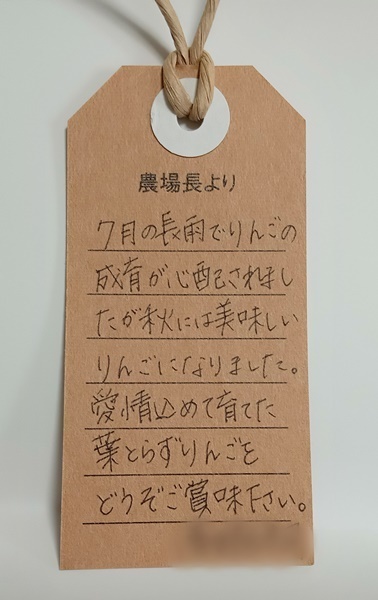 農場長より
7月の長雨でりんごの
成育が心配されまし
たが秋には美味しい
りんごになりました。
愛情込めて育てた
葉とらずりんごを
どうぞご賞味下さい。